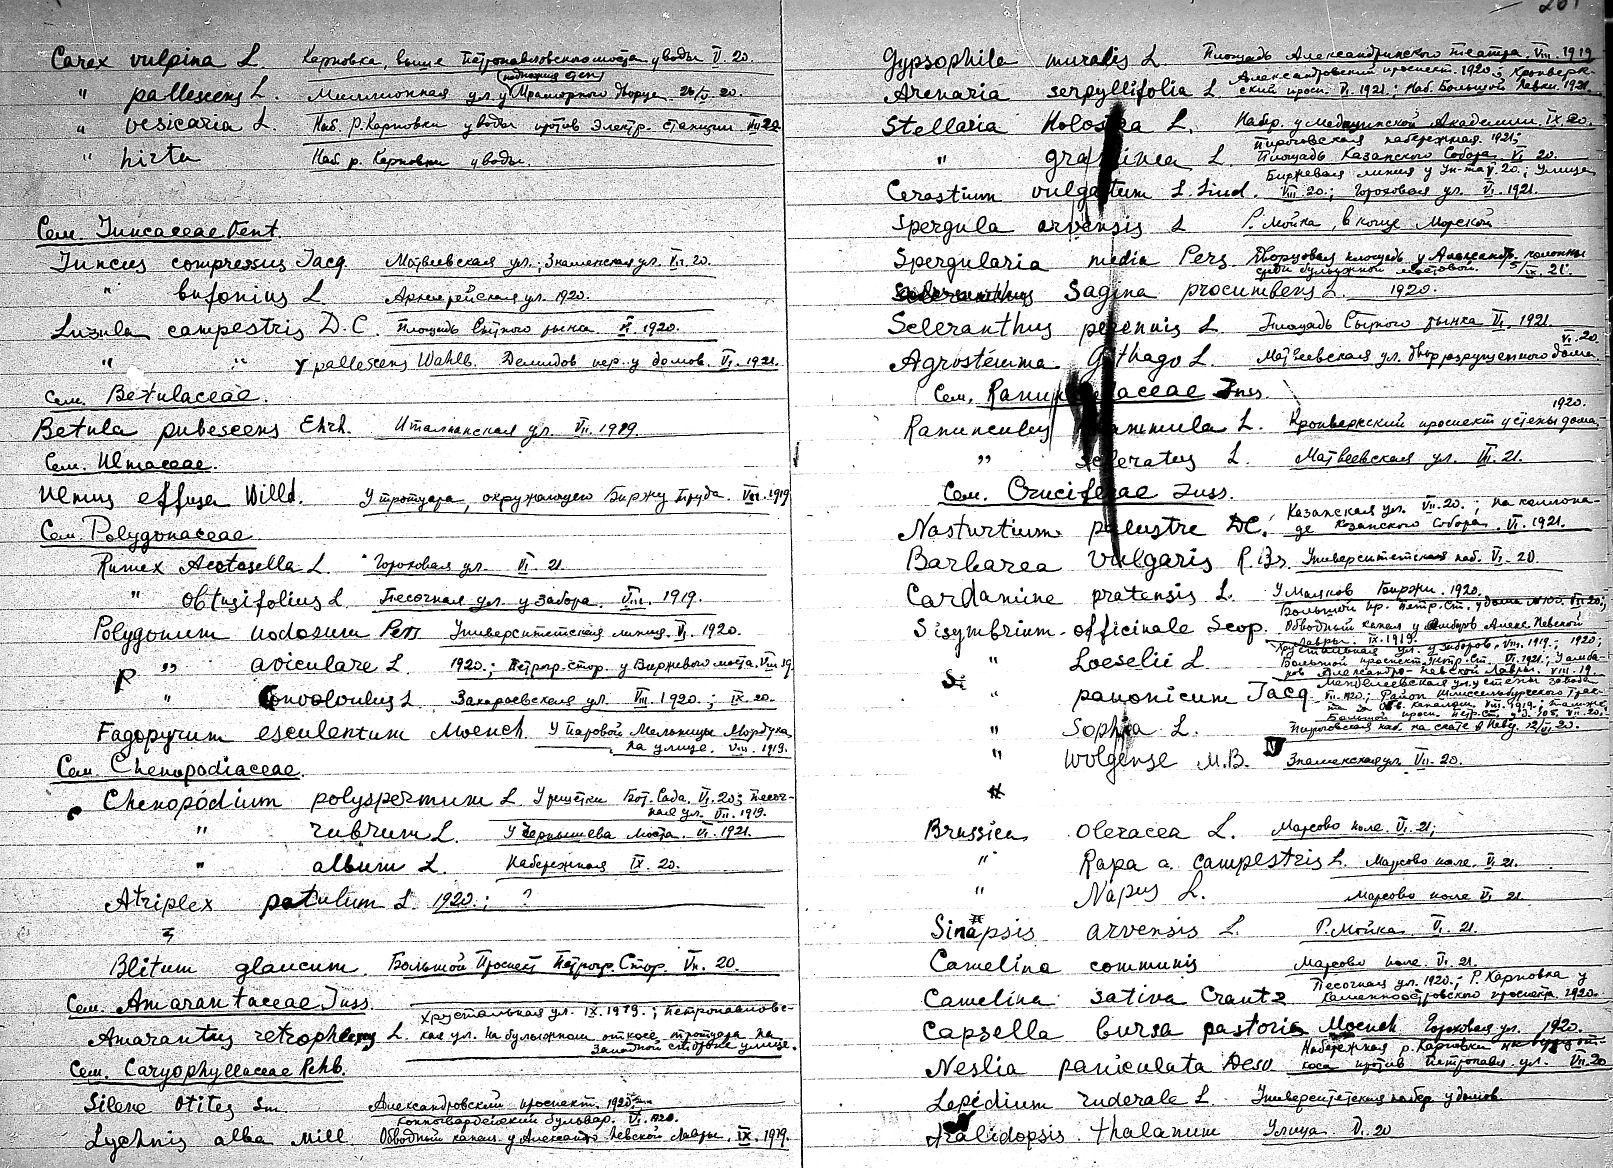 Carex vulpina L. Карповка, выше Петропавловского моста у воды V. 20.
" pallescens L. Миллионная ул. у Мраморного Дворца. 26/V. 20.
" vesicaria L. Наб. р. Карповки у воды против Электр. станции VII 20
" hirta Наб. р. Карповки у воды.
Сем. Juncaceae Vent.
Juncus compressus Jacq Матвеевская ул.; Знаменская ул. VII. 20.
" bufonius L. Архиерейская ул. 1920.
Luzula campestris D.C. Площадь Сытного рынка 1920.
" " γ pallescens Wahlb. Демидов пер. у домов. VI. 1921.
Сем. Betulaceae.
Betula pubescens Ehrh. Итальянская ул. VII. 1919.
Сем. Ulmaceae.
Ulmus effusa Willd. У тротуара, окружающего Биржу Труда. VIII. 1919
Сем. Polygonaceae
Rumex Acetosella L. Гороховая ул. VI. 21
" obtusifolius L Песочная ул. у забора. VIII. 1919.
Polygonum nodosum Pers Университетская линия. VI. 1920.
" aviculare L. 1920.; Петрогр. стор. у Биржевого моста. VIII 19.
" Convolvulus L Захарьевская ул. VIII. 1920.; IX. 20.
Fagopyrum esculentum Moench. У Паровой Мельницы Мордуха
на улице. VIII. 1919.
Сем. Chenopodiaceae.
Chenopodium polyspermum L У решетки Бот. Сада. VI. 20; Песоч-
ная ул. VII. 1919.
" rubrum L. У Чернышева моста. VI. 1921.
" album L. Набережная IX. 20.
Atriplex patulum L 1920.; ?
"
Blitum glaucum. Большой Проспект Петрогр. Стор. VII. 20.
Сем. Amarantaceae Juss.
Хрустальная ул. IX. 1919.; Петропавловс-
Amarantus retroflexus L. кая ул. На булыжном откосе тротуара на
западной стороне улице.
Сем. Caryophyllaceae Rchb.
Silene Otites Sm. Александровский проспект. 1920;
Конногвардейский бульвар. VI. 1920.
Lychnis alba Mill. Обводный канал. у Александр. Невской Лавры. IX. 1919.
Gypsophila muralis L. Площадь Александринского театра. VIII. 1919
Александровский проспект. 1920.; Кронверк-
Arenaria serpyllifolia L ский просп. VI. 1921.; Наб. Большой Невки. 1921
Stellaria Holostea L. Набр. у Медицинской Академии IX. 20.
Пироговская набережная. 1921;
" graminea L. Площадь Казанского Собора VI 20.
Биржевая линия у Ун-та V. 20.; Улица
Cerastium vulgatum L. Lind. VIII. 20.; Гороховая ул. VI. 1921.
Spergula arvensis L Р. Мойка, в конце Морской
Spergularia media Pers Дворцовая площадь у Александр. колонны
среди булыжной мостовой. 21.
Sagina procumbens L. 1920.
Scleranthus perennis L Площадь Сытного рынка VI. 1921.
VI. 20
Agrostemma Githago L. Матвеевская ул. двор разрушенного дома
Сем. Ranunculaceae Juss.
1920.
Ranunculus flammula L. Кронверкский проспект у стены дома
" sceleratus L. Матвеевская ул. VI. 21.
Сем. Cruciferae Juss.
Казанская ул. VII. 20.; на колонна-
Nasturtium palustre DC. де Казанского Собора. VI. 1921.
Barbarea vulgaris R. Br. Университетская наб. VI. 20
Cardamine pratensis L. У Маяков Биржи. 1920.
Большой пр. Петр. Ст. у дома № 100. VII. 20;
Sisymbrium officinale Scop. Обводный канал у амбаров Алекс. Невской
Лавры. IX. 1919.
Хрустальная ул. у заборов. VIII. 1919.; 1920;
" Loeselii L Большой проспект Петр. Ст. VI. 1921.; У амба-
ров Александро-Невской Лавры. VIII. 19
Менделеевская ул. у стены завода
" panonicum Jacq. VII. 1920.; Район Шлиссельбургского Трак-
та за Обв. каналом VIII. 1919.;
Большой просп. Петр. Ст. у д. VII. 20.
" Sophia L. Пироговская наб. на скате в Неву. 12/VI. 20.
" Wolgense M.B. Знаменская ул VII. 20.
Brassica oleracea L. Марсово поле. VI. 21;
" Rapa a. campestris L. Марсово поле. VI 21.
" Napus L. Марсово поле VI 21
Sinapsis arvensis L. Р. Мойка VI. 21.
Camelina communis Марсово поле. VI. 21.
Песочная ул. 1920.; Р. Карповка у
Camelina sativa Crantz Каменноостровского проспекта 1920.
Capsella bursa pastoris Moench Гороховая ул. 1920.
Набережная р. Карповки на
Neslia paniculata Desv коса против Петропавл ул. VII. 20
Lepidium ruderale L. Университетская набер у домов
Arabidopsis thalianum Улица VI. 20